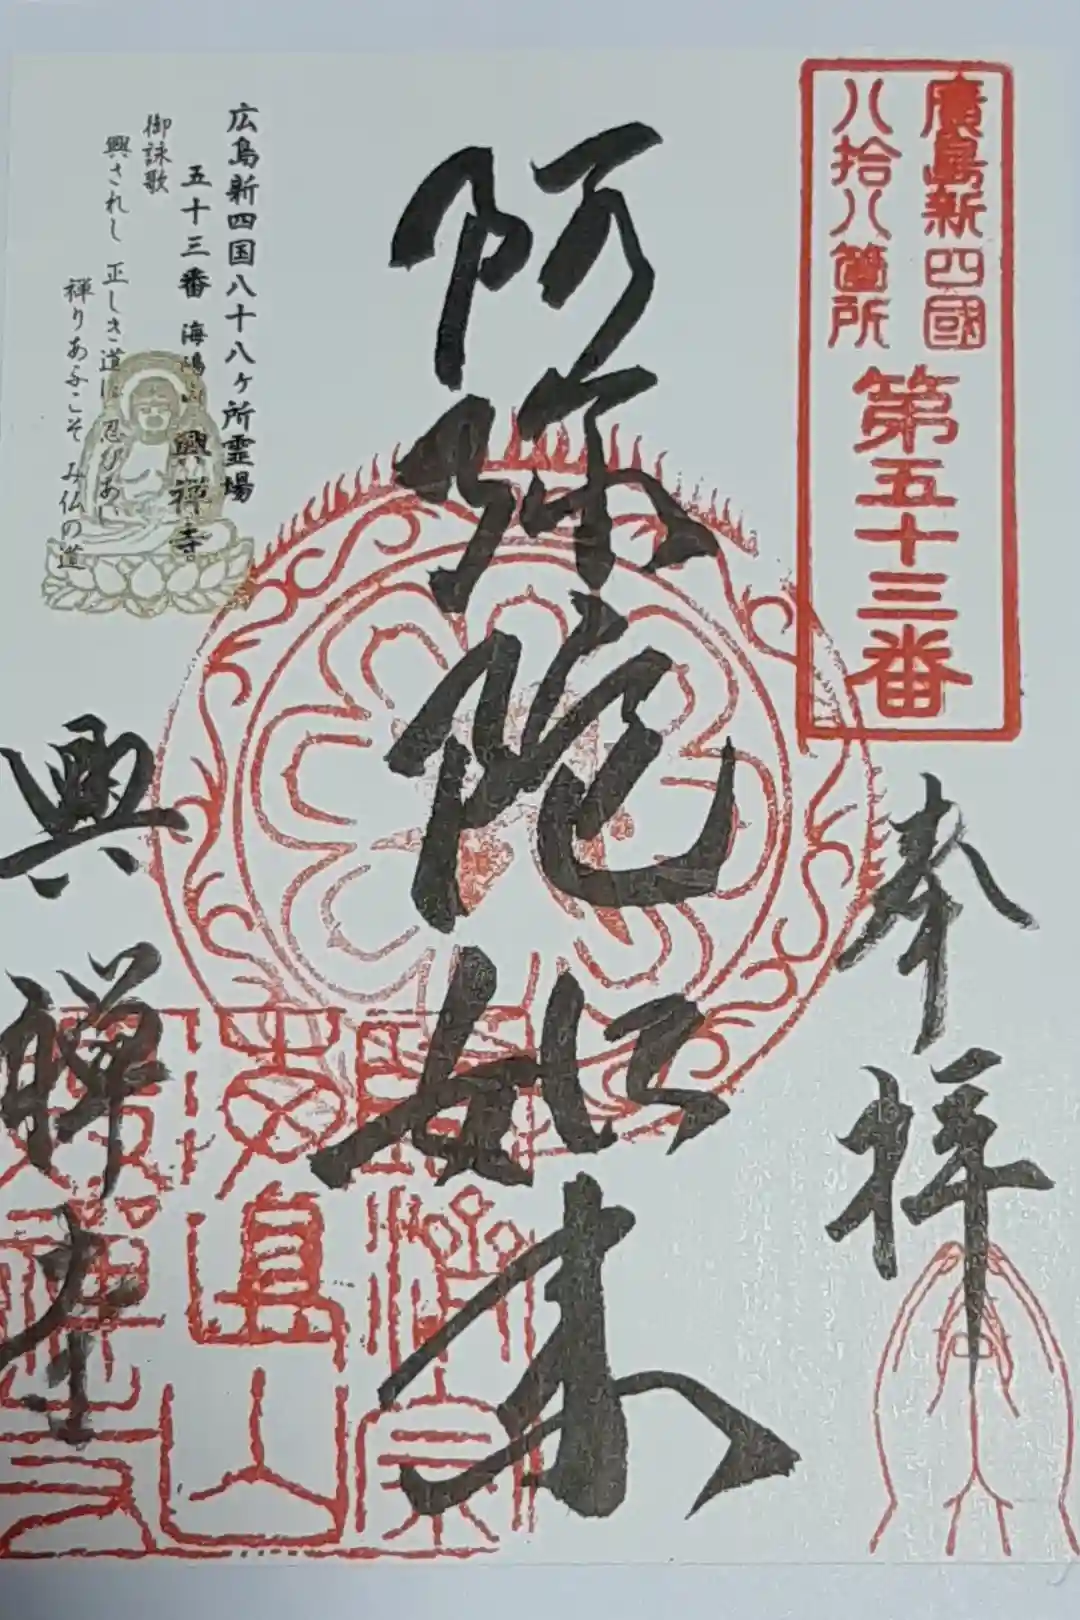 廣島新四國
八拾八箇所
第五十三番
奉拝
阿弥陀如来
広島新四国八十八ヶ所霊場
五十三番 海嶋山 興禅寺
御詠歌
興されし 正しき道は 忍びあい
禅りあふこそ み仏の道
興禅寺